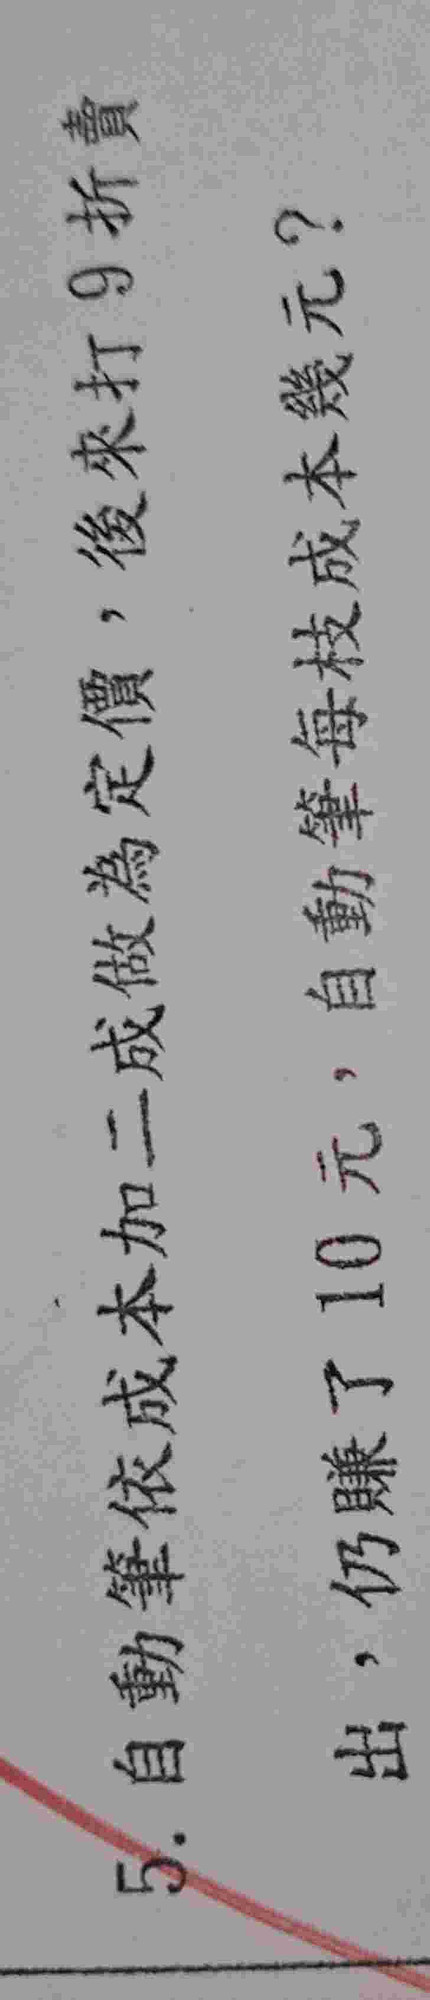 5. 自動筆依成本加二成做為定價，後來打9折賣
出，仍賺了10元，自動筆每枝成本幾元？